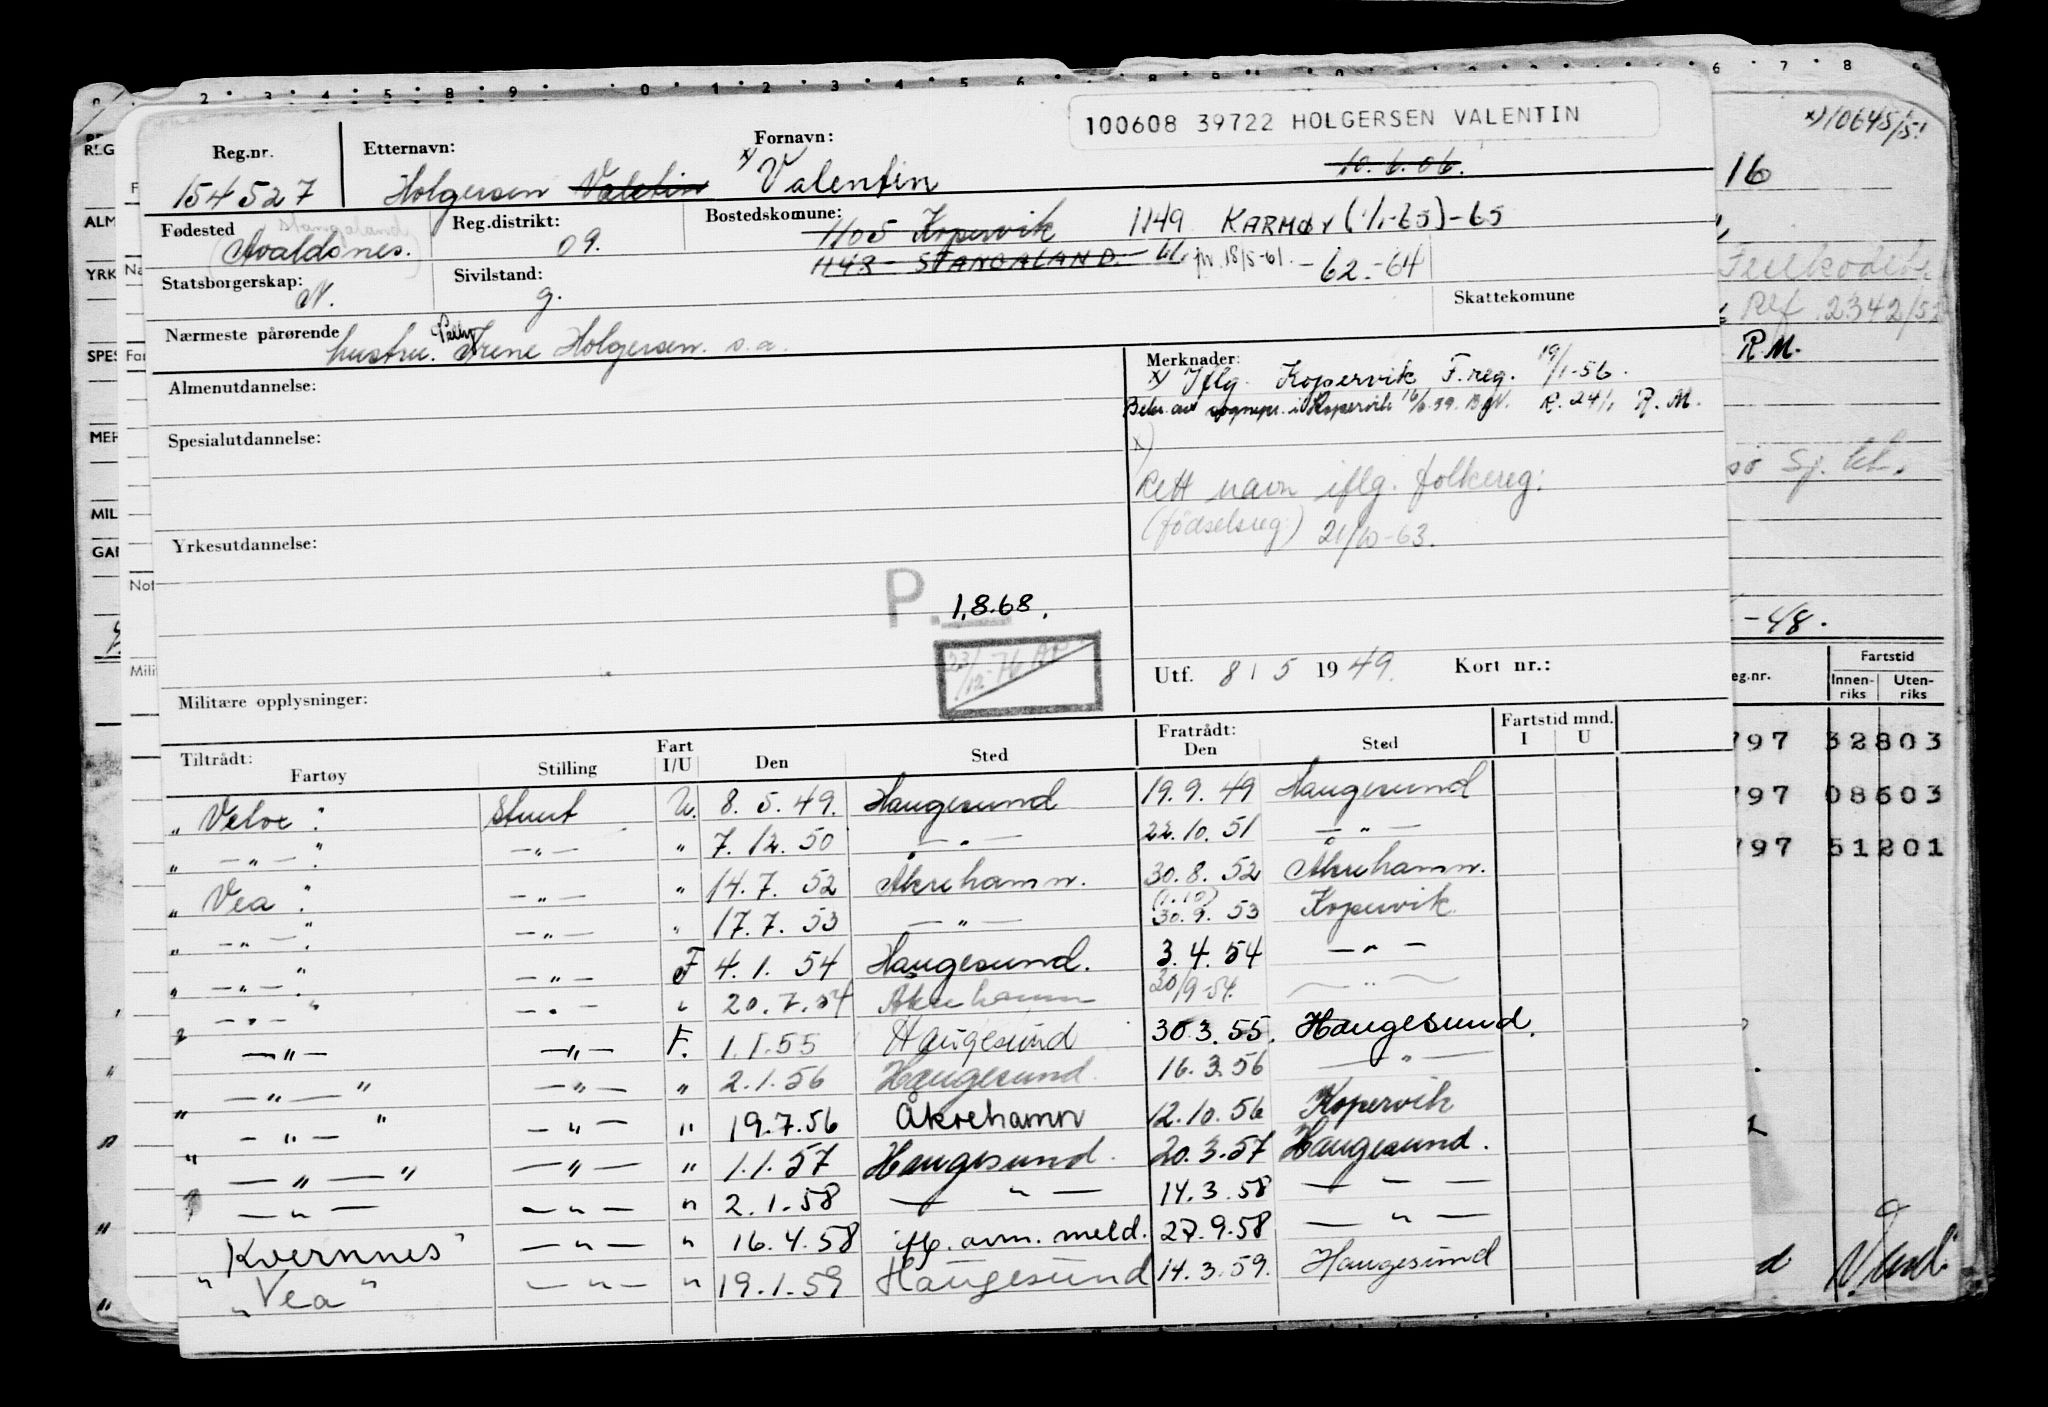 100608 39722 HOLGERSEN VALENTIN
Reg.nr. Etternavn: Fornavn:
154527 Holgersen Valetin x) Valentin 10.6.06.
Fødested Reg.distrikt: Bostedskomune:
Stangaland
Avaldsnes. 09. 1105 Kopervik 1149 KARMØY (1/1-65) -65
1148 - STANGALAND. - 61. 18/5-61. -62.-64
Statsborgerskap: Sivilstand: Skattekomune
N. g.
Nærmeste pårørende hustru. Irene Holgersen. s.a.
Almenutdannelse:
Merknader:
x) Iflg. Kopervik F.reg. 19/1-56.
i Kopervik R. 241, R.M.
x)
Rett navn iflg. folkereg:
(fødselsreg.) 21/10-63.
Spesialutdannelse:
Yrkesutdannelse:
P. 1.8.68.
Militære opplysninger:
Utf. 8 / 5 1949. Kort nr.:
Tiltrådt: Fratrådt: Fartstid mnd.
Fartøy Stilling Fart I/U Den Sted Den Sted I U
" Velox : U. 8. 5. 49. Haugesund 19. 9. 49 Haugesund
" — " — : — " — " 7. 12. 50 — " — 22. 10. 51 — " —
" Vea : — " — " 14. 7. 52 Åkrehamn. 30. 8. 52 Åkrehamn.
" — " — : — " — " 17. 7. 53 — " — (1.10) 30. 9. 53 Kopervik
" — " — " — " — F 4. 1. 54 Haugesund. 3. 4. 54 — " —
" — " — " — " — " 20. 7. 54 Åkrehamn 30/9-54. — " —
— " — — " — F. 1. 1. 55 Haugesund 30.3. 55. Haugesund.
" — " — " — " — " 2. 1. 56 Haugesund. 16. 3. 56 — " —
" — " — " — " — " 19. 7. 56 Åkrehamn 12. 10. 56 Kopervik
" — " — " — " — " 1. 1. 57 Haugesund. 20. 3. 57 Haugesund.
— " — — " — " 2. 1. 58 — " — 14. 3. 58 — " —
" Kvernnes " — " — " 16. 4. 58 iflg. avm. meld. 27. 9. 58 — " —
" Vea " — " — " 19. 1. 59 Haugesund 14. 3. 59. Haugesund
x) 10645/51
16
Feilkodet
Ref. 2342/52
R.M.
-48.
Fartstid
eg.nr. Innen-riks Uten-riks
797 32803
797 08603
797 51201
REG
ALM
YRK
SPES
MER
MIL
GAN
Na
Far
Not
Mili